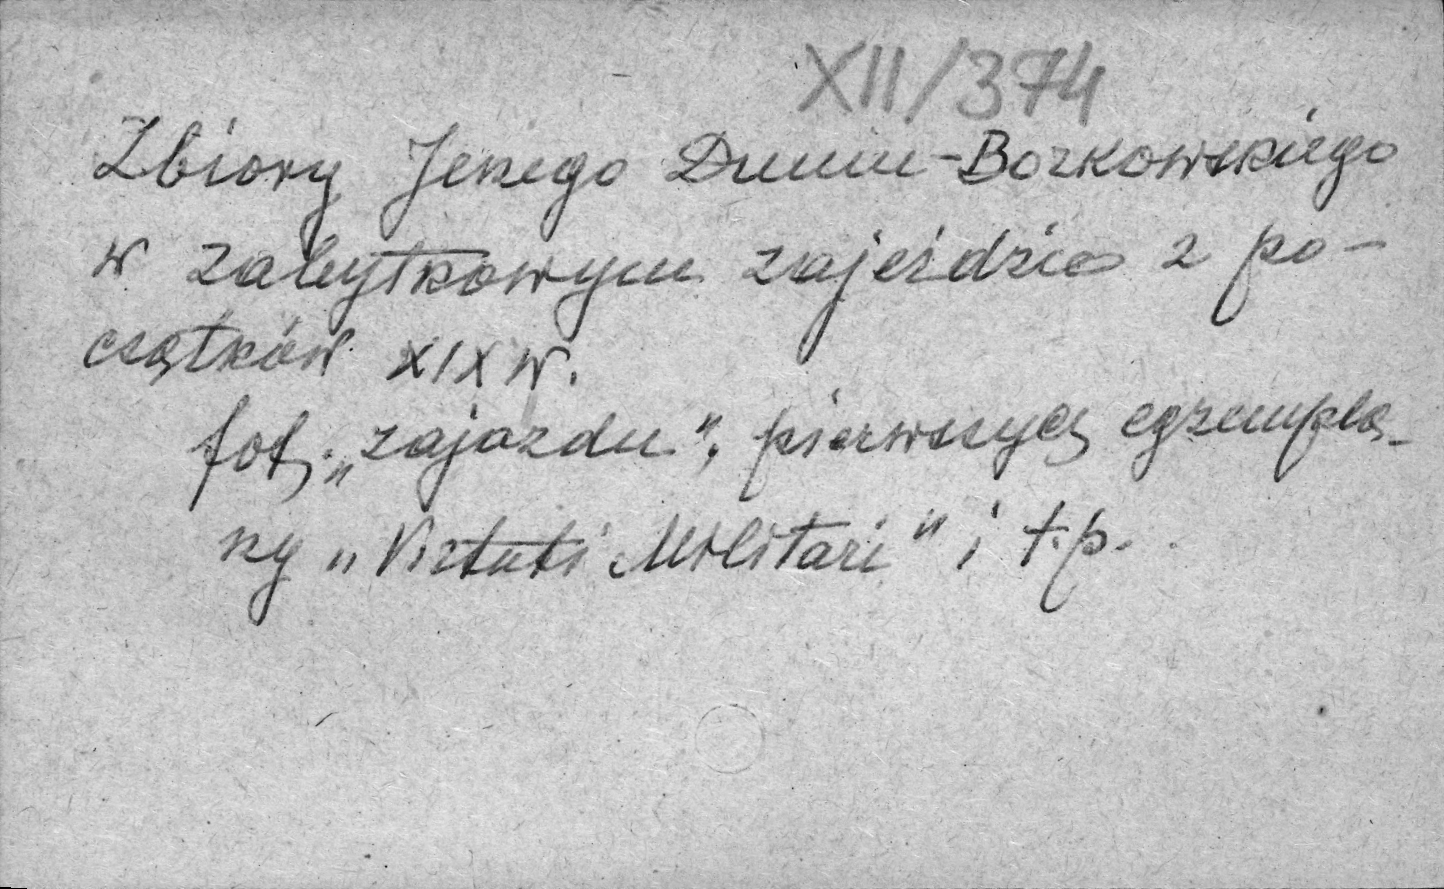 XII/374
Zbiory Jerzego Dunin-Borkowskiego
w zabytkowym zajeździe z po-
czątków XIX w.
fot. „zajazdu", pierwszych egzempla-
rzy „Virtuti Militari" i t.p.